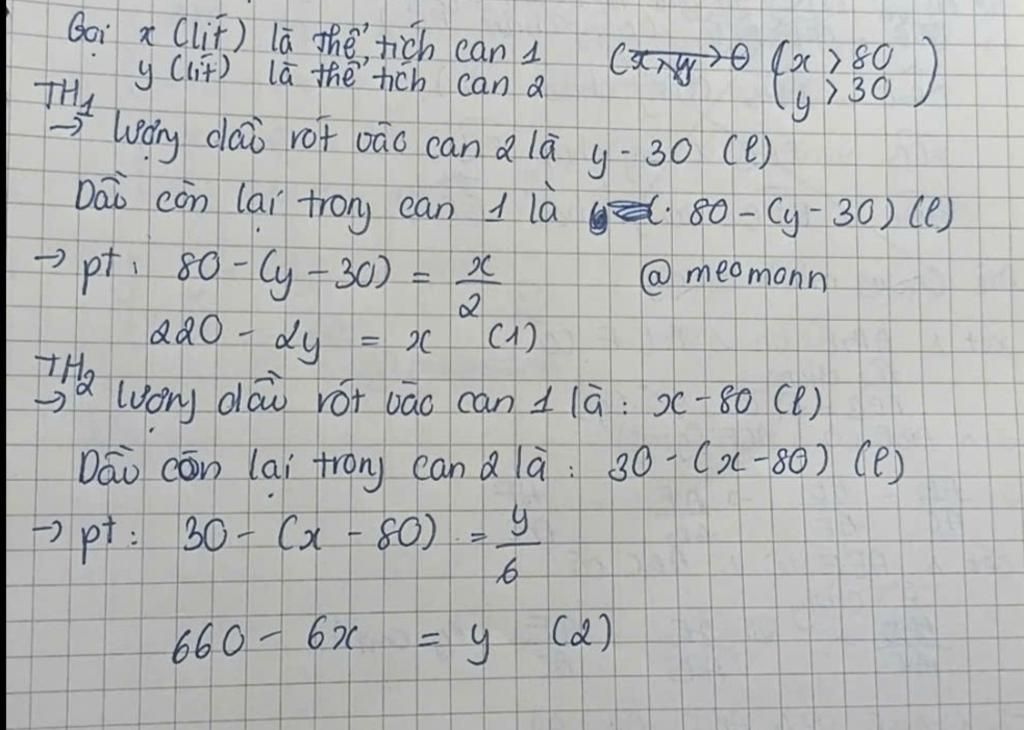 Gọi x (lít) là thể tích can 1 (x > 80
y (lít) là thể tích can 2 y > 30)
TH1
→ lượng dầu rót vào can 2 là y - 30 (l)
Dầu còn lại trong can 1 là 80 - (y - 30) (l)
→ pt: 80 - (y - 30) = x/2 @ meomonn
220 - 2y = x (1)
TH2
→ lượng dầu rót vào can 1 là : x - 80 (l)
Dầu còn lại trong can 2 là : 30 - (x - 80) (l)
→ pt: 30 - (x - 80) = y/6
660 - 6x = y (2)